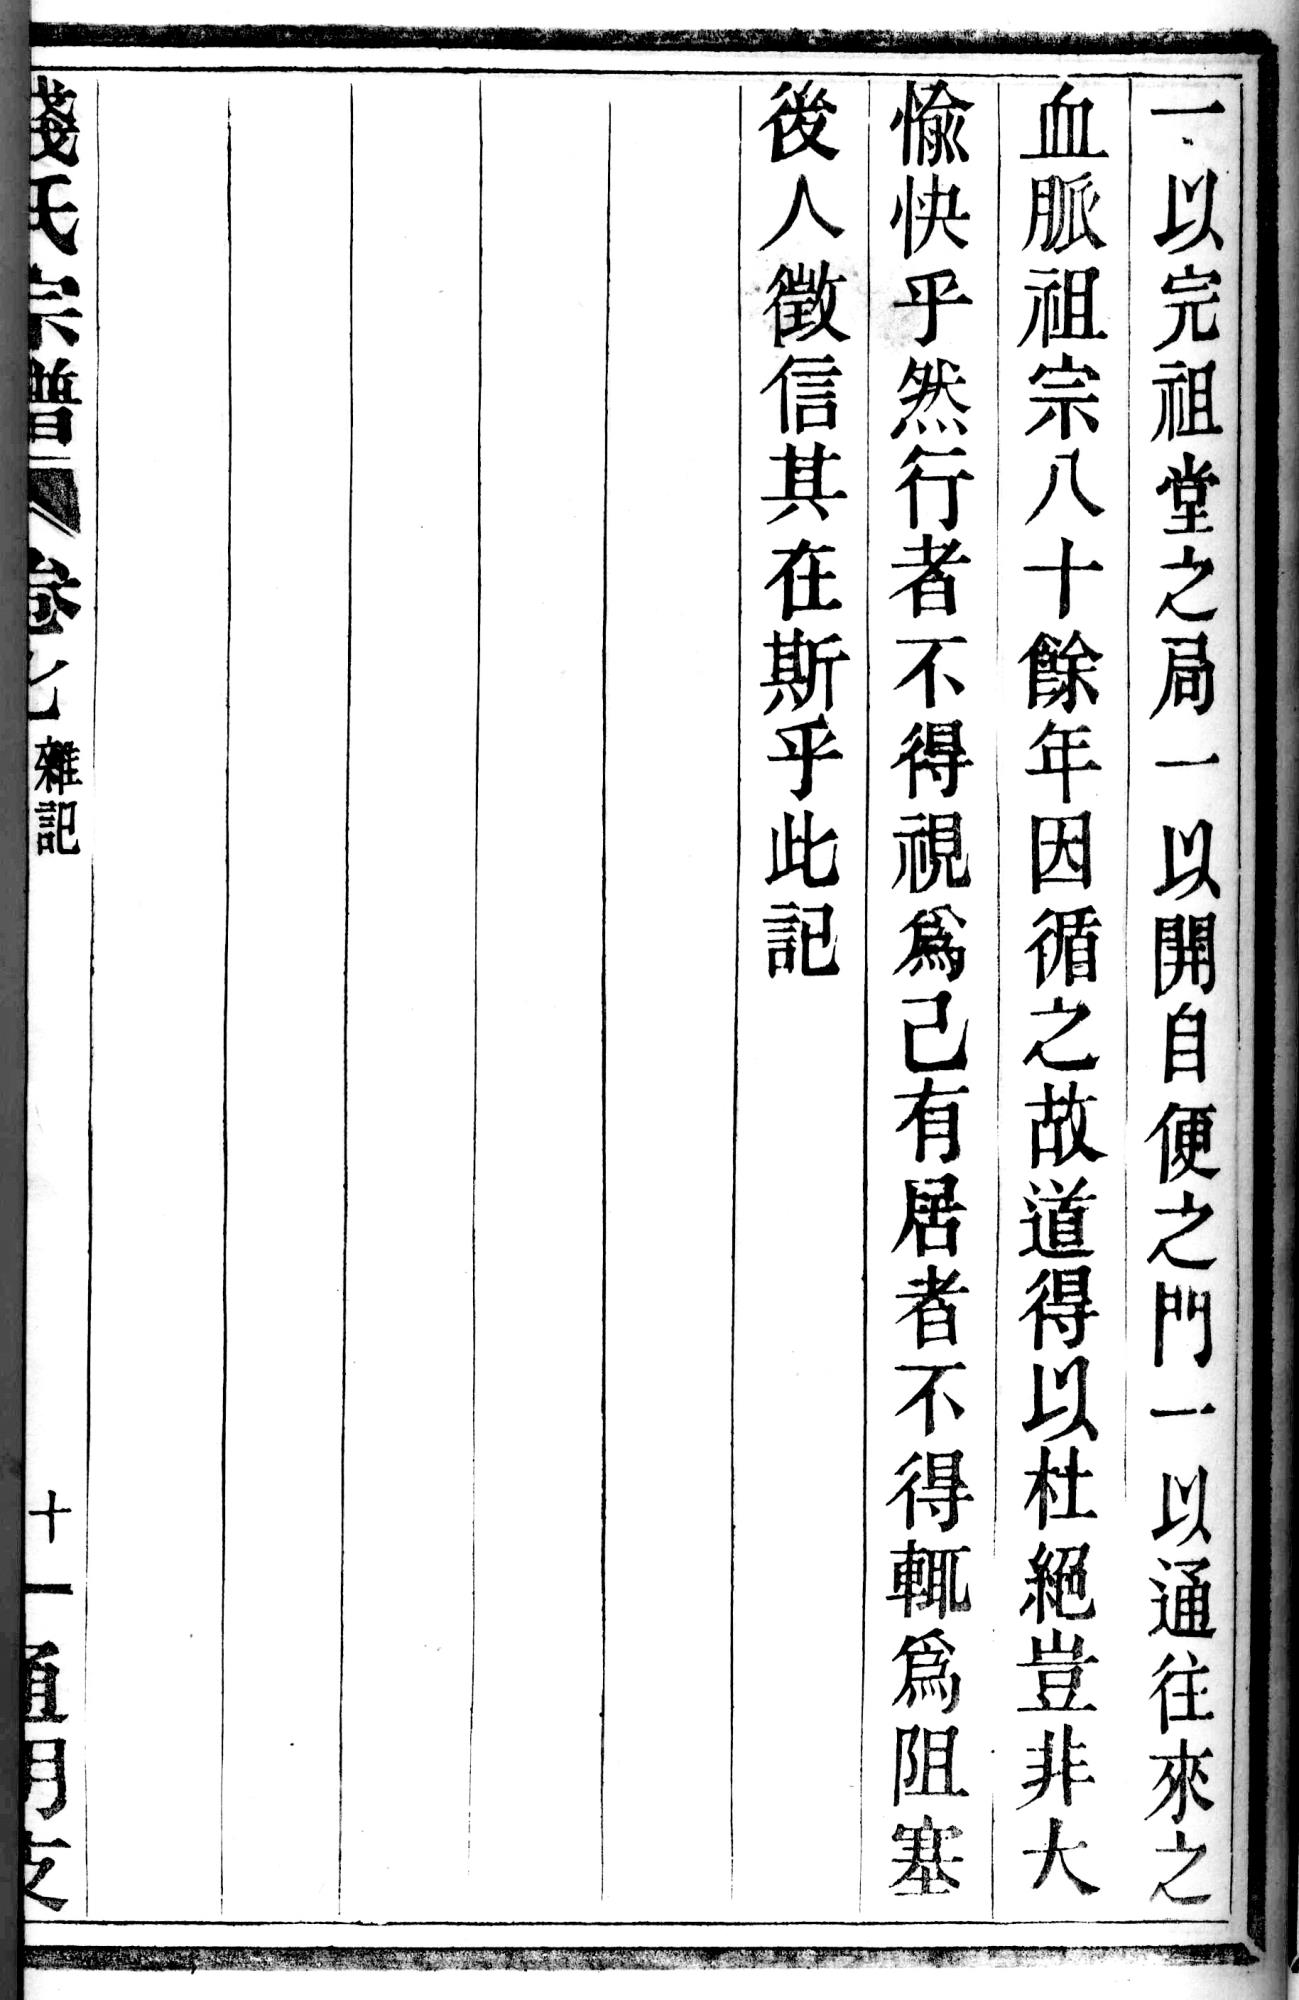 一以完祖堂之局一以開自便之門一以通往來之
血脈祖宗八十餘年因循之故道得以杜絕豈非大
愉快乎然行者不得視爲己有居者不得輒爲阻塞
後人徵信其在斯乎此記
錢氏宗譜 卷七 雜記 十一 通明支